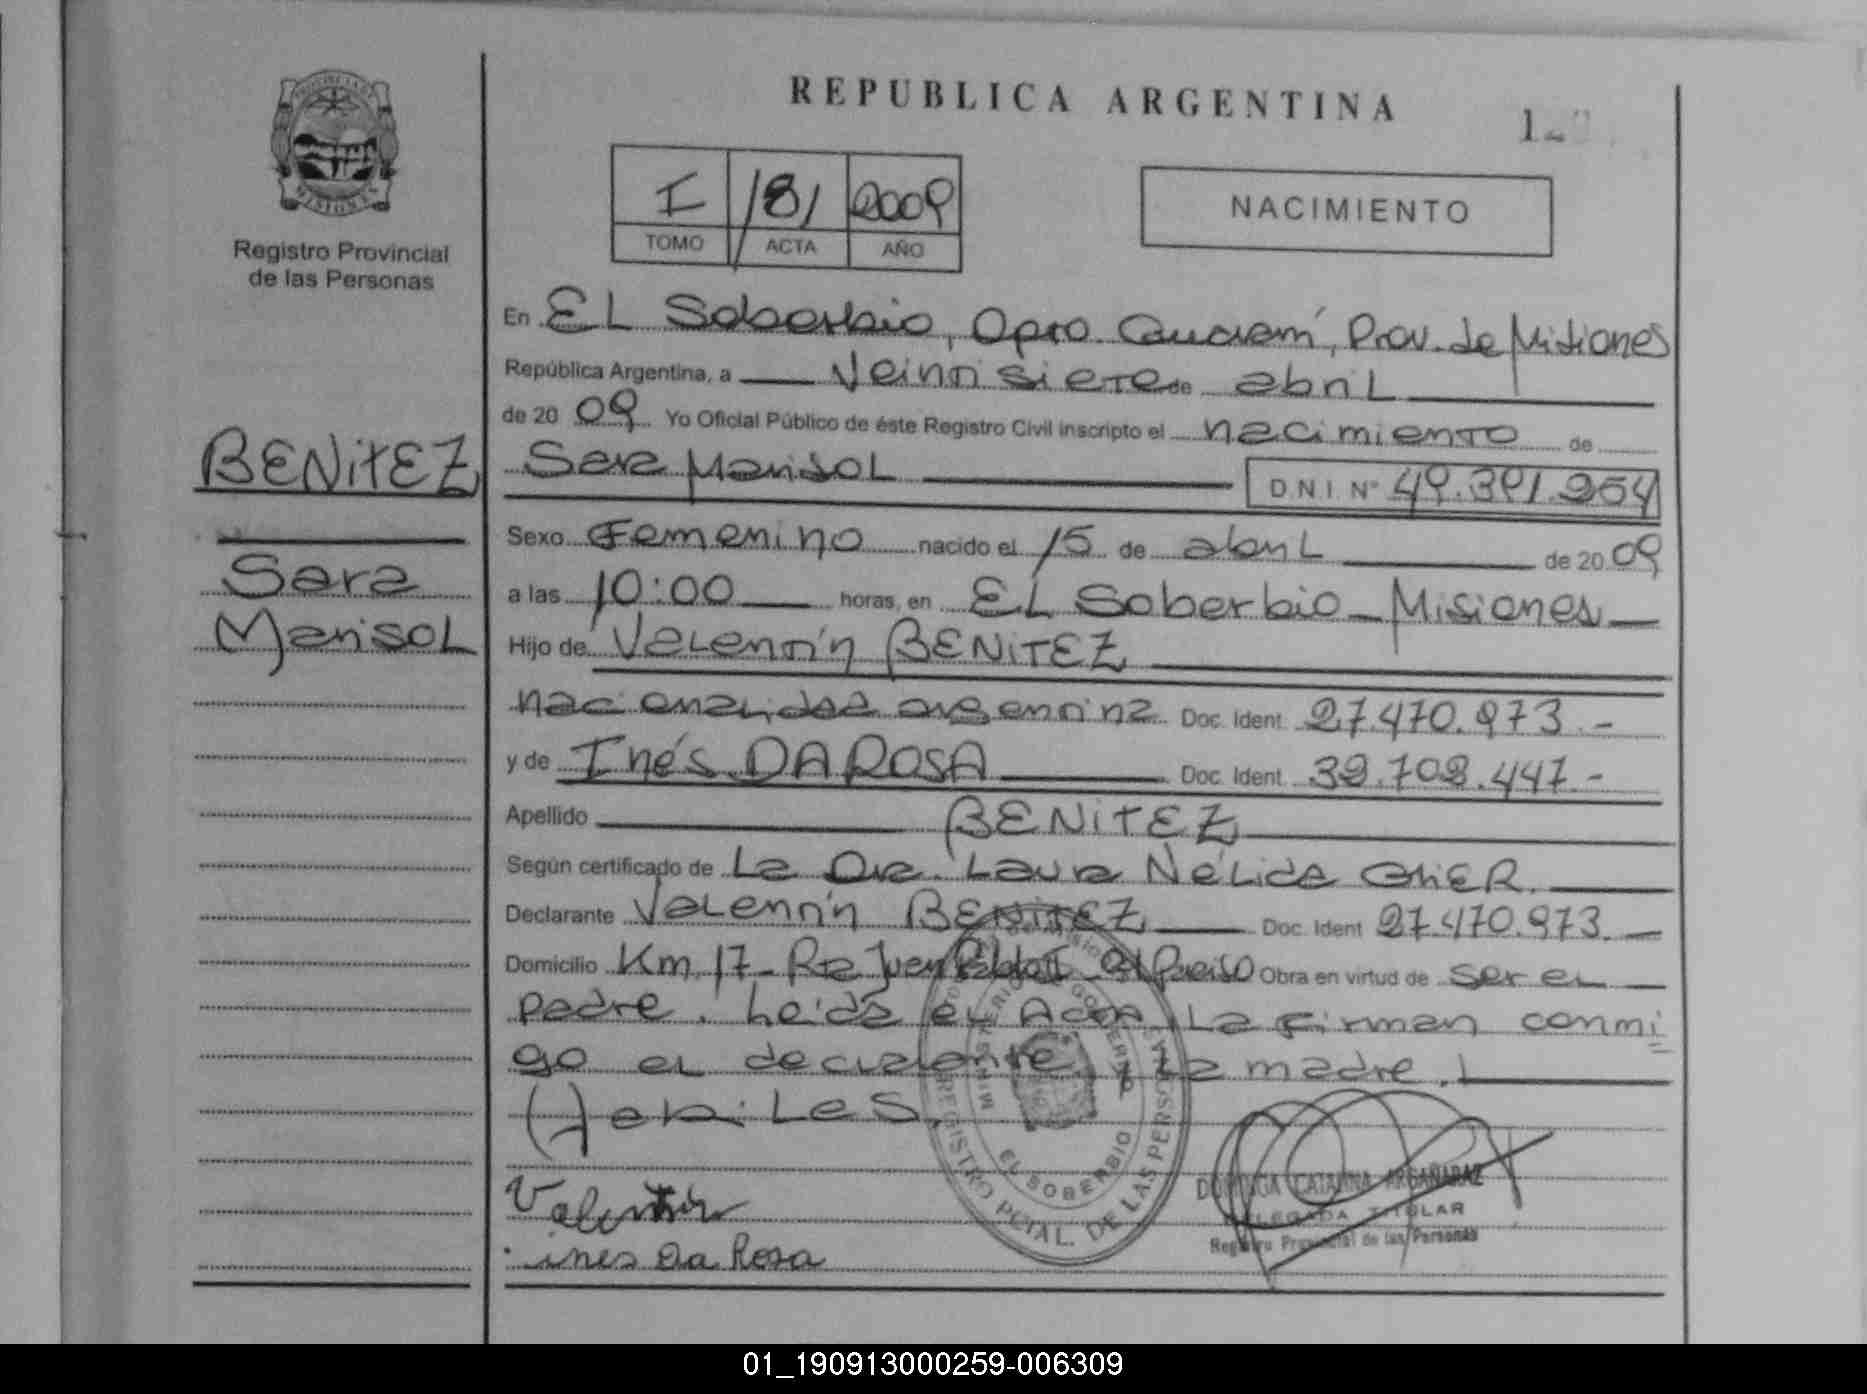 REPUBLICA ARGENTINA
PROVINCIA DE MISIONES
Registro Provincial
de las Personas
I 181 2009
TOMO ACTA AÑO
NACIMIENTO
En EL Soberbio, Dpto. Guaraní, Prov. de Misiones
República Argentina, a Veintisiete de abril
de 20 09 Yo Oficial Público de éste Registro Civil inscripto el nacimiento de
BENITEZ
Sara Marisol
Sara Marisol D.N.I. Nº 49.391.254
Sexo Femenino nacido el 15 de abril de 20 09
a las 10:00 horas, en EL Soberbio - Misiones
Hijo de Valentín BENITEZ
nacionalidad argentina Doc. Ident. 27.470.973.-
y de Inés DA ROSA Doc. Ident. 39.708.447.-
Apellido BENITEZ
Según certificado de La Dra. Laura Nélida
Declarante Valentín BENITEZ Doc. Ident 27.470.973.
Domicilio Km. 17 - Obra en virtud de ser el
padre. Leída el Acta, La firman conmi
go el declarante y La madre.
Valentin
ines Da Rosa
MINISTERIO DE GOBIERNO
REGISTRO PCIAL. DE LAS PERSONAS
EL SOBERBIO
CATALINA ARGAÑARAZ
DELEGADA TITULAR
Registro Provincial de las Personas
01_190913000259-006309